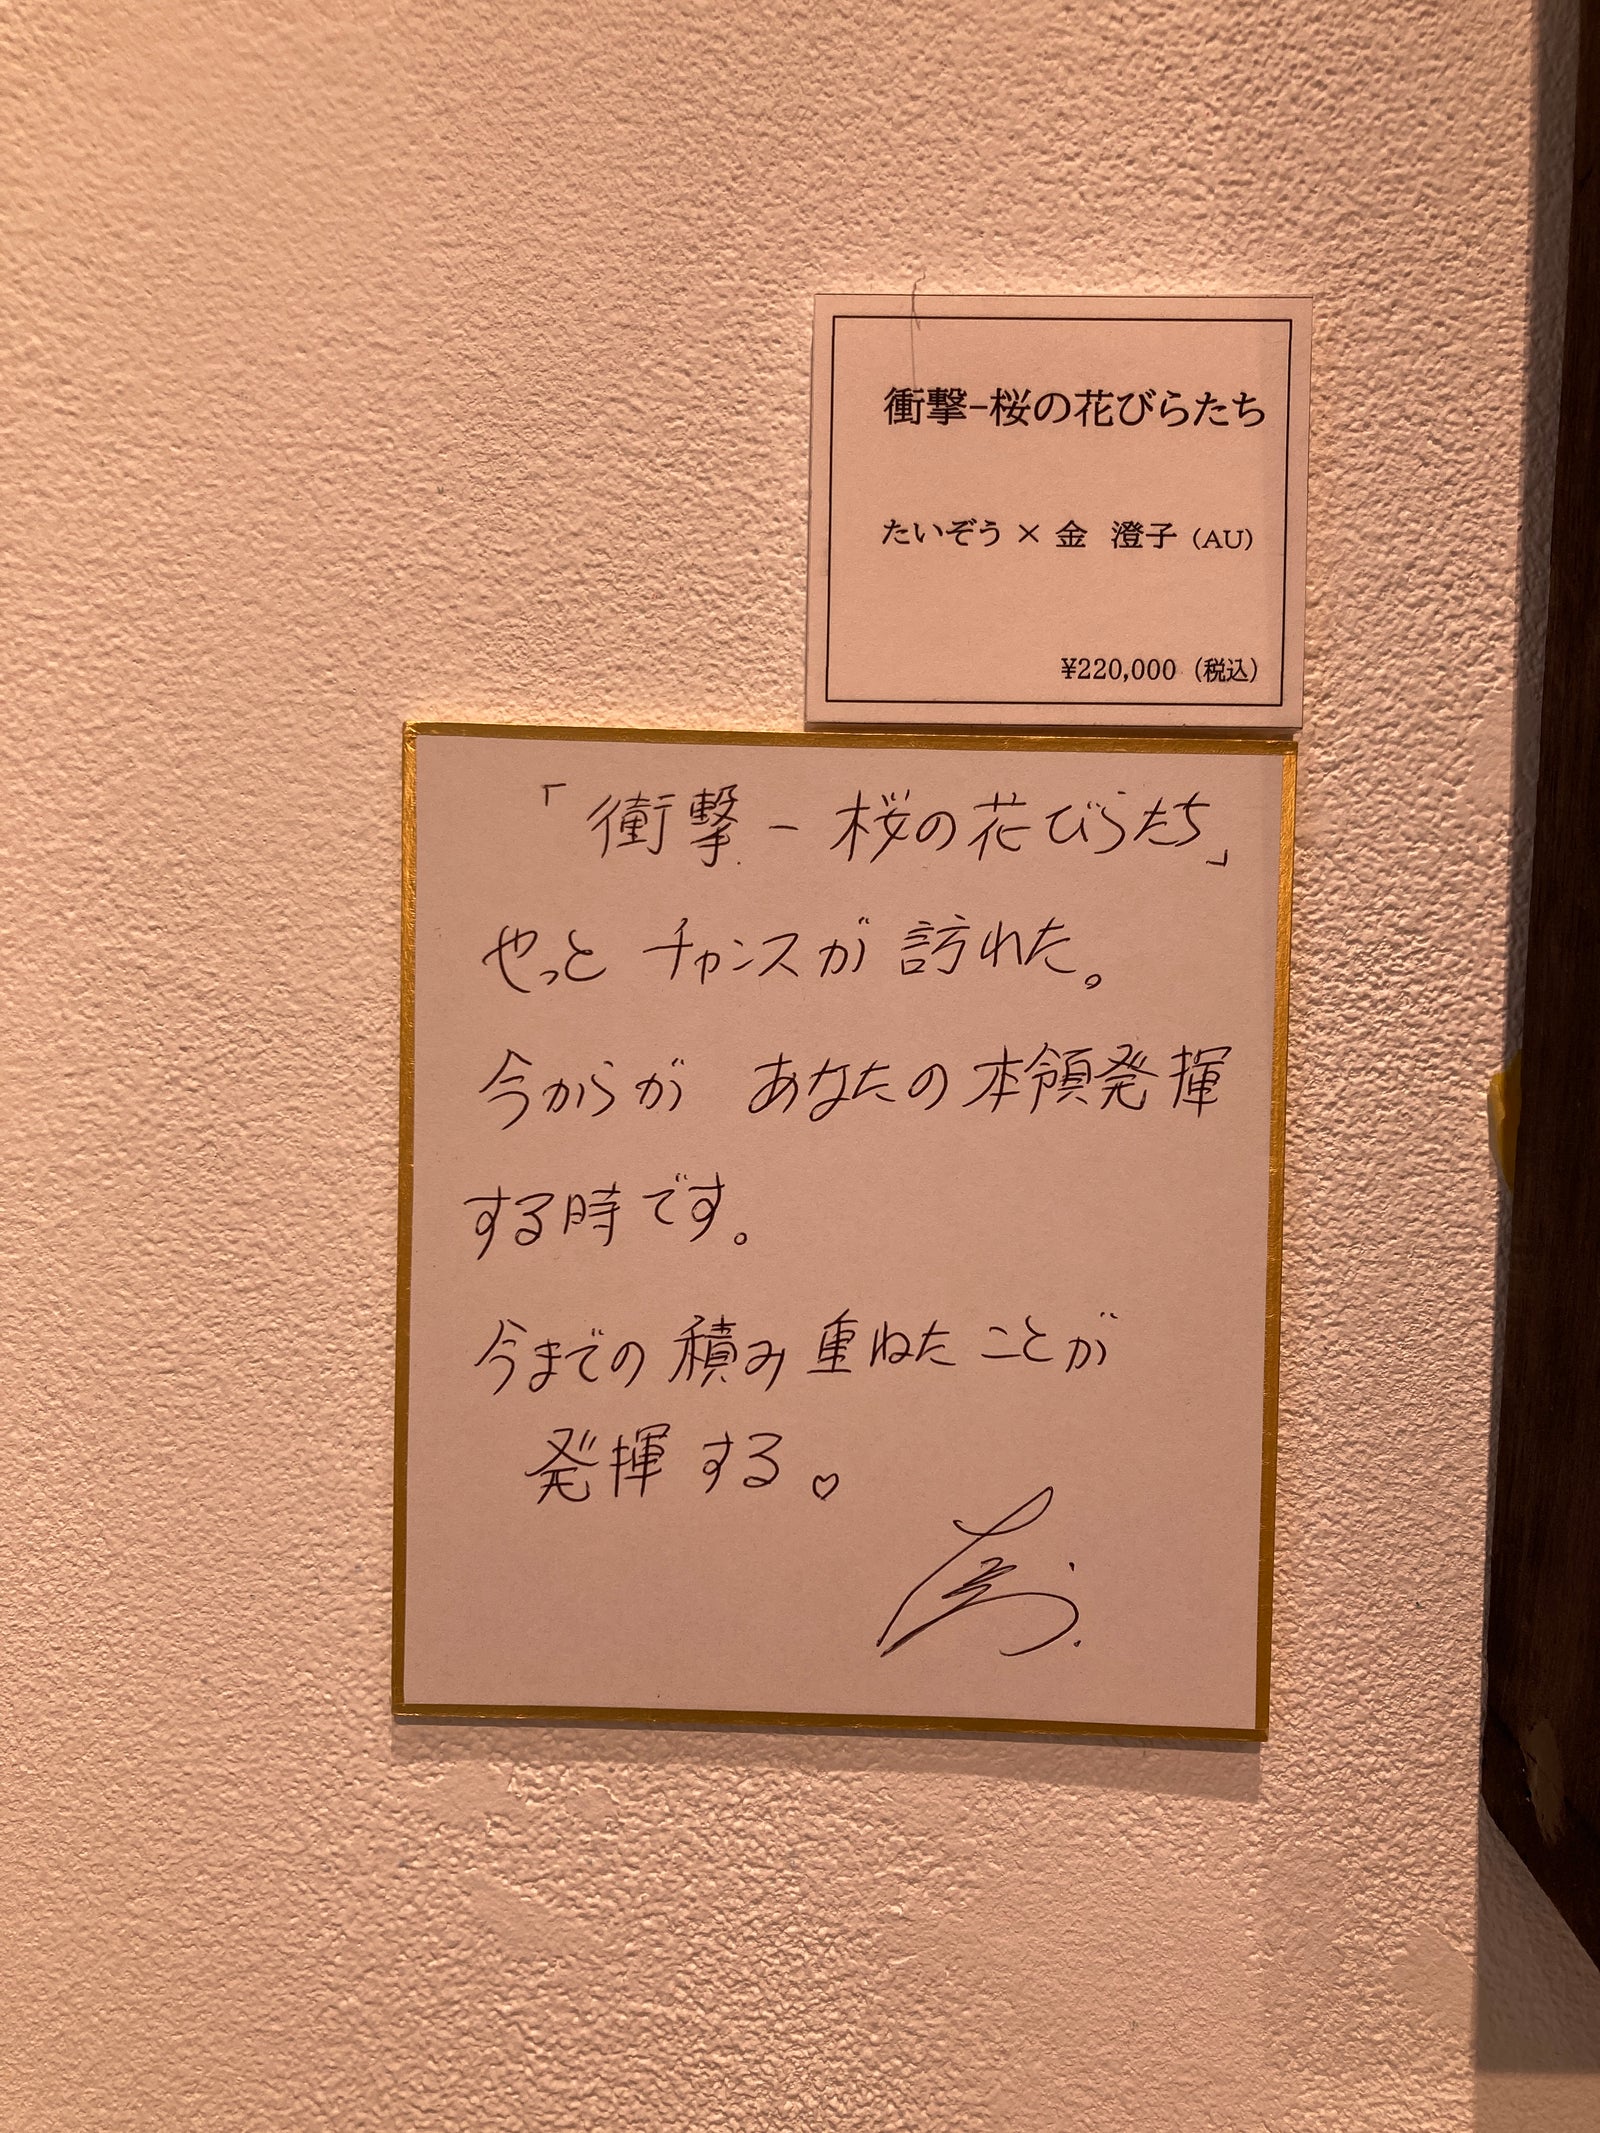 衝撃-桜の花びらたち
たいぞう × 金 澄子 (AU)
¥220,000 (税込)
「衝撃-桜の花びらたち」
やっと チャンスが 訪れた。
今からが あなたの本領発揮
する時です。
今までの積み重ねたことが
発揮する♡